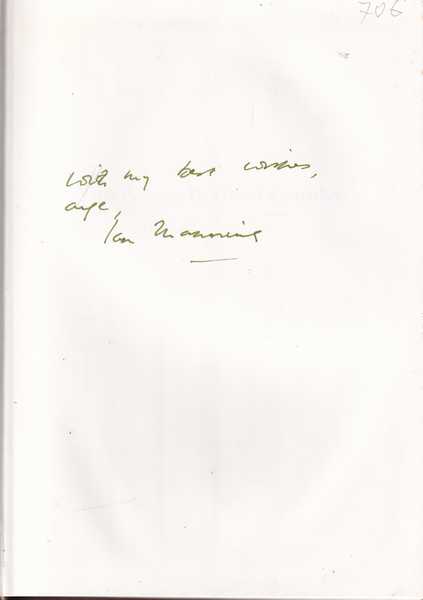 706
with my best wishes,
Ian Manning